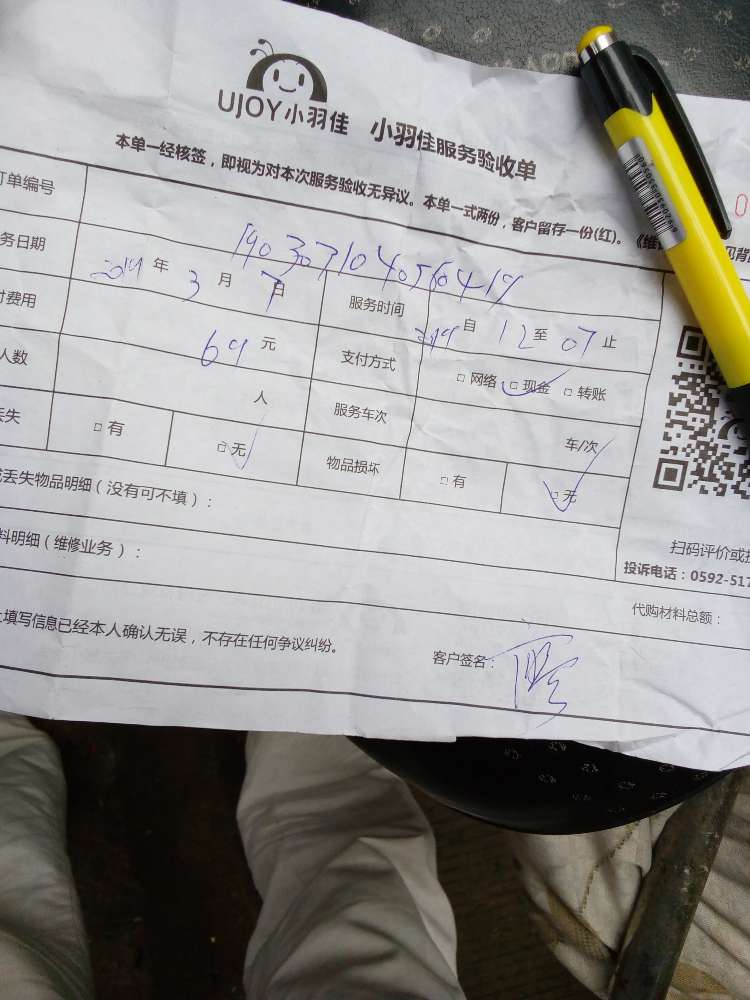 UJOY小羽佳 小羽佳服务验收单
本单一经核签，即视为对本次服务验收无异议。本单一式两份，客户留存一份(红)。《维
订单编号 190307104056419
务日期 2019 年 3 月 7 日 服务时间 自 12 至 07 止
付费用 69 元 支付方式 □ 网络 □ 现金 □ 转账
人数 人 服务车次 车/次
丢失 □ 有 □ 无 物品损坏 □ 有 □ 无
或丢失物品明细（没有可不填）：
料明细（维修业务）：
扫码评价或投
投诉电话：0592-517
代购材料总额：
上填写信息已经本人确认无误，不存在任何争议纠纷。
客户签名：